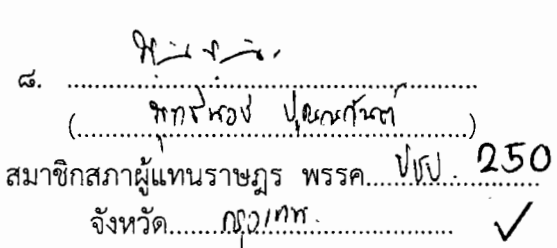 ๘. ................................................
(พุทธิพงษ์ ปุณณกันต์)
สมาชิกสภาผู้แทนราษฎร พรรค ปชป. 250
จังหวัด กรุงเทพ. ✓